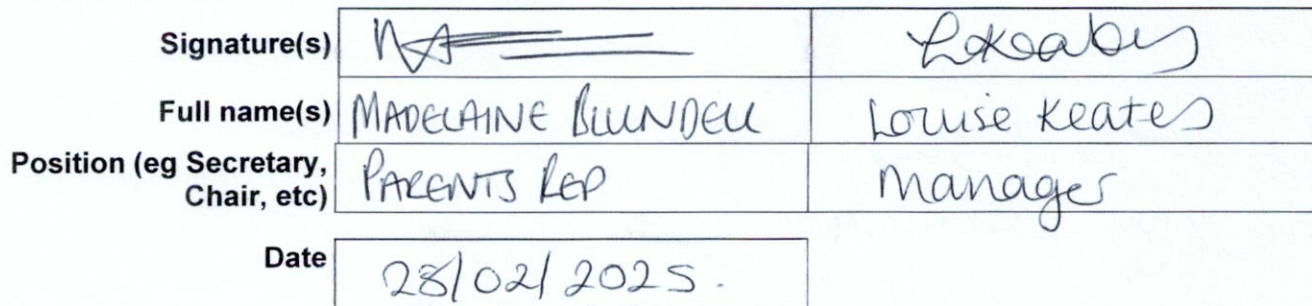 Signature(s) LKeates
Full name(s) MADELAINE BLUNDELL Louise Keates
Position (eg Secretary, Chair, etc) PARENTS REP Manager
Date 28/02/2025.